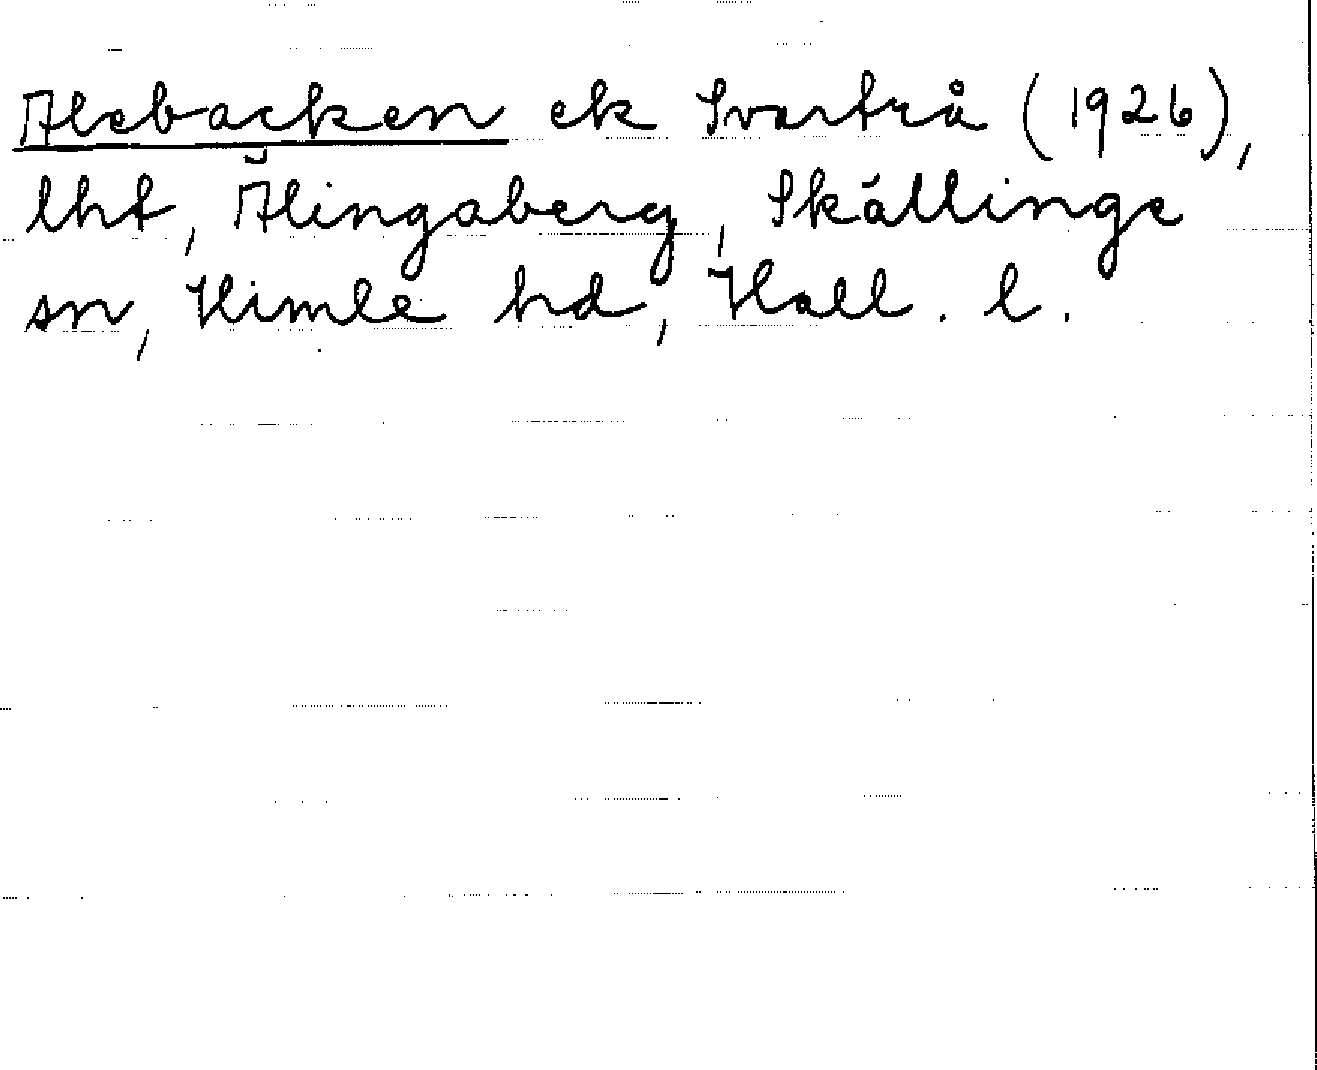 Alebacken ek Svartrå (1926),
lht, Älingaberg, Skällinge
sn, Himle hd, Hall. l.